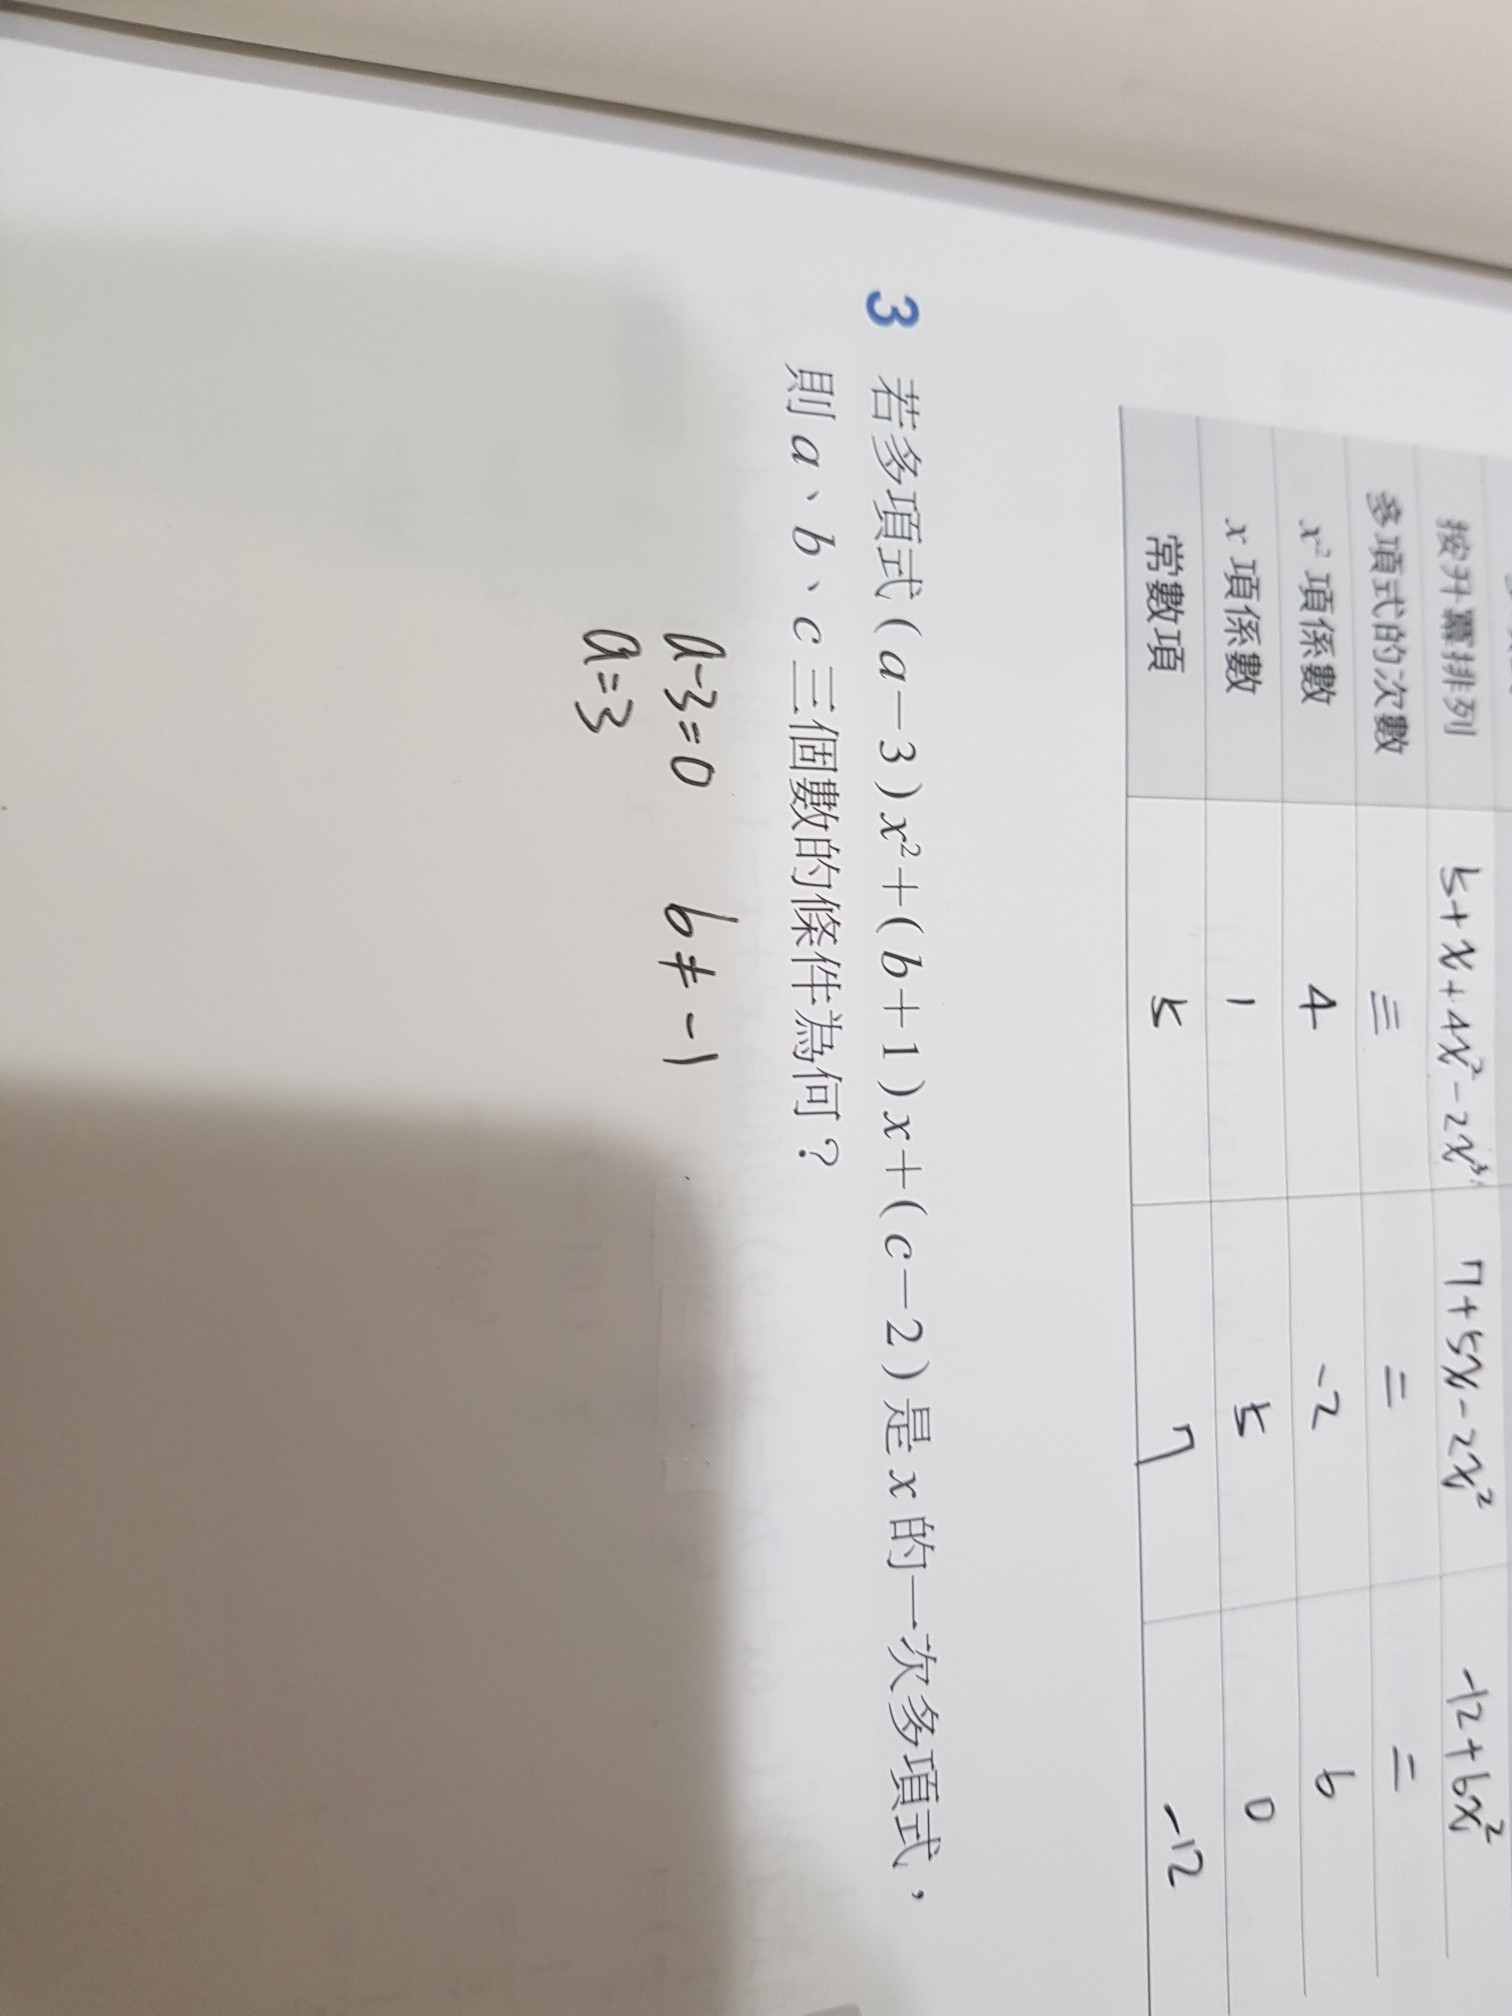 按升冪排列 5+x+4x²-2x³ 7+5x-2x² -12+6x²
多項式的次數 三 二 二
x²項係數 4 -2 6
x項係數 1 5 0
常數項 5 7 -12
3 若多項式(a-3)x²+(b+1)x+(c-2)是x的一次多項式，
則a、b、c三個數的條件為何？
a-3=0 b≠-1
a=3